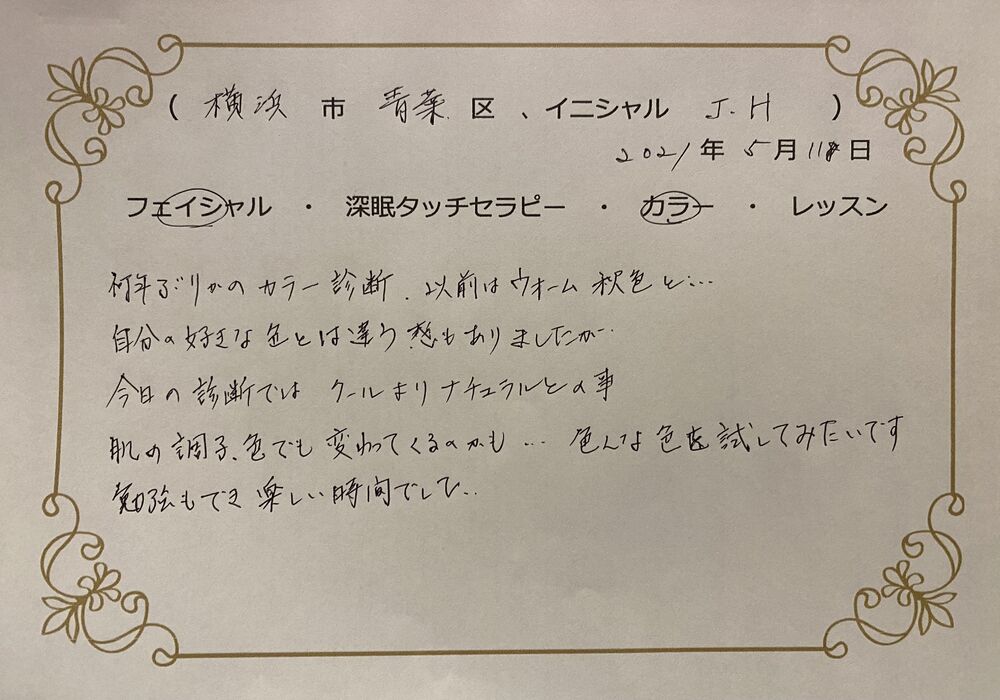 ( 横浜 市 青葉 区 、イニシャル J.H )
2021年 5月 118日
フェイシャル ・ 深眠タッチセラピー ・ カラー ・ レッスン
何年ぶりかの カラー診断、以前は ウォーム 秋色と…
自分の好きな色とは違う感もありましたが…
今日の診断では クールよりナチュラルとの事
肌の調子、色でも 変わってくるのかも … 色んな色を試してみたいです
勉強もでき 楽しい時間でした..